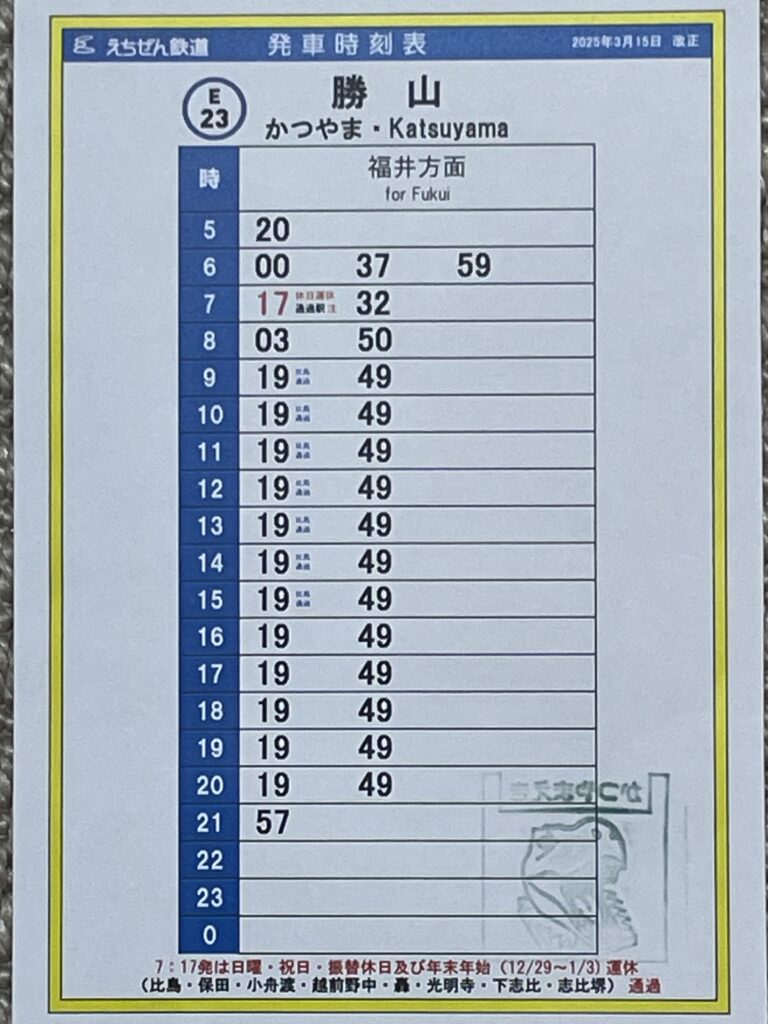 えちぜん鉄道 発車時刻表 2025年3月15日 改正
E 23
勝山
かつやま・Katsuyama
時 福井方面
for Fukui
5 20
6 00 37 59
7 17 休日運休 通過駅 注 32
8 03 50
9 19 比島 通過 49
10 19 比島 通過 49
11 19 比島 通過 49
12 19 比島 通過 49
13 19 比島 通過 49
14 19 比島 通過 49
15 19 比島 通過 49
16 19 49
17 19 49
18 19 49
19 19 49
20 19 49
21 57
22
23
0
7:17発は日曜・祝日・振替休日及び年末年始(12/29~1/3)運休
(比島・保田・小舟渡・越前野中・轟・光明寺・下志比・志比堺) 通過